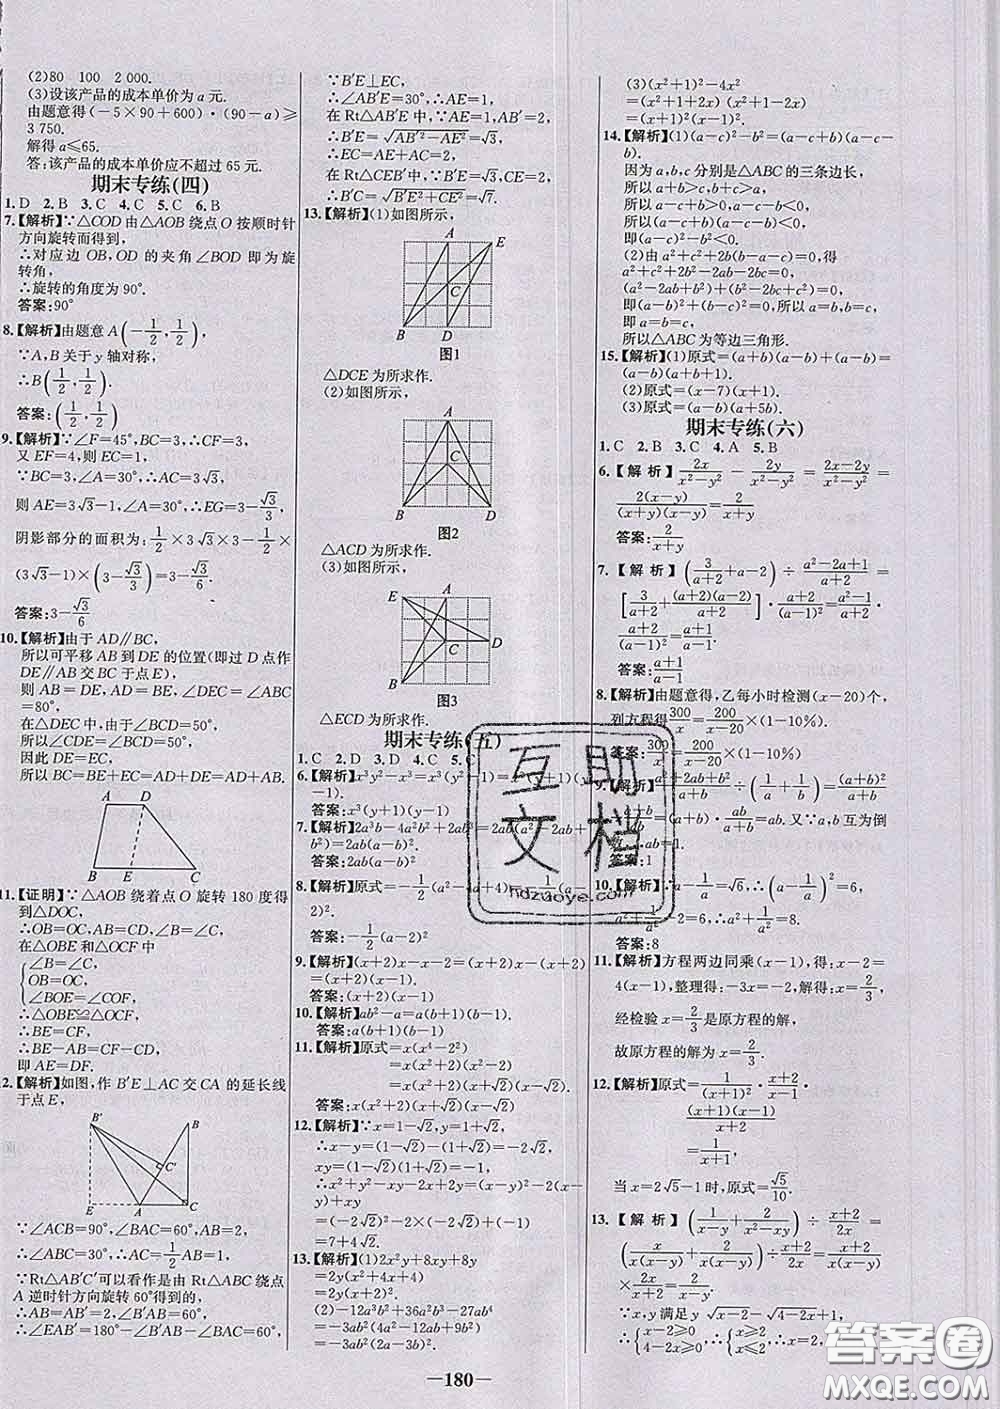 (2)80 100 2 000.
(3)设该产品的成本单价为a元.
由题意得(-5×90+600)·(90-a)≥
3 750.
解得a≤65.
答:该产品的成本单价应不超过65元.
期末专练(四)
1.D 2.B 3.C 4.C 5.C 6.B
7.【解析】∵△COD由△AOB绕点O按顺时针
方向旋转而得到,
∴对应边OB,OD的夹角∠BOD即为旋
转角,
∴旋转的角度为90°.
答案:90°
8.【解析】由题意A(-1/2,1/2),
∵A,B关于y轴对称,
∴B(1/2,1/2).
答案:(1/2,1/2)
9.【解析】∵∠F=45°,BC=3,∴CF=3,
又EF=4,则EC=1,
∵BC=3,∠A=30°,∴AC=3√3,
则AE=3√3-1,∠A=30°,∴EG=3-√3/3,
阴影部分的面积为:1/2×3√3×3-1/2×
(3√3-1)×(3-√3/3)=3-√3/6.
答案:3-√3/6
10.【解析】由于AD∥BC,
所以可平移AB到DE的位置(即过D点作
DE∥AB交BC于点E),
则AB=DE,AD=BE,∠DEC=∠ABC
=80°,
在△DEC中,由于∠BCD=50°,
所以∠CDE=∠BCD=50°,
因此DE=EC,
所以BC=BE+EC=AD+DE=AD+AB.
A D
B E C
11.【证明】∵△AOB绕着点O旋转180度得
到△DOC,
∴OB=OC,AB=CD,∠B=∠C,
在△OBE和△OCF中
∠B=∠C,
OB=OC,
∠BOE=∠COF,
∴△OBE≌△OCF,
∴BE=CF,
∴BE-AB=CF-CD,
即AE=DF.
12.【解析】如图,作B′E⊥AC交CA的延长线
于点E,
B′ B
C′
E A C
∵∠ACB=90°,∠BAC=60°,AB=2,
∴∠ABC=30°,∴AC=1/2AB=1,
∵Rt△AB′C′可以看作是由Rt△ABC绕点
A逆时针方向旋转60°得到的,
∴AB=AB′=2,∠B′AB=60°,
∴∠EAB′=180°-∠B′AB-∠BAC=60°,
∵B′E⊥EC,
∴∠AB′E=30°,∴AE=1,
在Rt△AB′E中,∵AE=1,AB′=2,
∴B′E=√(AB′²-AE²)=√3,
∴EC=AE+AC=2,
在Rt△CEB′中,∵B′E=√3,CE=2,
∴B′C=√(B′E²+CE²)=√7.
13.【解析】(1)如图所示,
A E
C
B D
图1
△DCE为所求作.
(2)如图所示,
A
C
B D
图2
△ACD为所求作.
(3)如图所示,
E A
C D
B
图3
△ECD为所求作.
期末专练(五)
1.C 2.D 3.D 4.C 5.C
6.【解析】x³y²-x³=x³(y²-1)=x³(y+1)(y
-1).
答案:x³(y+1)(y-1)
7.【解析】2a³b-4a²b²+2ab³=2ab(a²-2ab+
b²)=2ab(a-b)².
答案:2ab(a-b)²
8.【解析】原式=-1/2(a²-4a+4)=-1/2(a-
2)².
答案:-1/2(a-2)²
9.【解析】(x+2)x-x-2=(x+2)x-(x+2)
=(x+2)(x-1).
答案:(x+2)(x-1)
10.【解析】ab²-a=a(b+1)(b-1).
答案:a(b+1)(b-1)
11.【解析】原式=x(x⁴-2²)
=x(x²+2)(x²-2)
=x(x²+2)(x+√2)(x-√2).
答案:x(x²+2)(x+√2)(x-√2)
12.【解析】∵x=1-√2,y=1+√2,
∴x-y=(1-√2)-(1+√2)=-2√2,
xy=(1-√2)(1+√2)=-1,
∴x²+y²-xy-2x+2y=(x-y)²-2(x-
y)+xy
=(-2√2)²-2×(-2√2)+(-1)
=7+4√2.
13.【解析】(1)2x²y+8xy+8y
=2y(x²+4x+4)
=2y(x+2)².
(2)-12a³b²+36a²b³-27ab⁴
=-3ab²(4a²-12ab+9b²)
=-3ab²(2a-3b)².
(3)(x²+1)²-4x²
=(x²+1+2x)(x²+1-2x)
=(x+1)²(x-1)².
14.【解析】(1)(a-c)²-b²=(a-c+b)(a-c-
b).
因为a,b,c分别是△ABC的三条边长,
所以a+b>c,a<b+c,
所以a+b-c>0,a-c-b<0,
所以(a-c+b)(a-c-b)<0,
即(a-c)²-b²<0,
即(a-c)²-b²的值小于0.
(2)由a²+c²+2b(b-a-c)=0,得
a²+c²+2b²-2ab-2bc=0,
(a²-2ab+b²)+(c²-2bc+b²)=0,
即(a-b)²+(b-c)²=0,所以a=b,b=c,
即a=b=c,
所以△ABC为等边三角形.
15.【解析】(1)原式=(a+b)(a-b)+(a-b)=
(a-b)(a+b+1).
(2)原式=(x-7)(x+1).
(3)原式=(a-b)(a+5b).
期末专练(六)
1.C 2.B 3.C 4.A 5.B
6.【解析】2x/(x²-y²)-2y/(x²-y²)=(2x-2y)/(x²-y²)=
2(x-y)/((x+y)(x-y))=2/(x+y)
答案:2/(x+y)
7.【解析】(3/(a+2)+a-2)÷(a²-2a+1)/(a+2)=
[3/(a+2)+(a+2)(a-2)/(a+2)]·(a+2)/(a-1)²=(a²-1)/(a+2)·
(a+2)/(a-1)²=(a+1)/(a-1).
答案:(a+1)/(a-1)
8.【解析】由题意得,乙每小时检测(x-20)个,
列方程得300/x=200/(x-20)×(1-10%).
答案:300/x=200/(x-20)×(1-10%)
9.【解析】
=ab/(a+b)=1/(a+b).又∵a,b互为倒
数,∴ab=1.
答案:1
10.【解析】∵a-1/a=√6,∴(a-1/a)²=6,
∴a²+1/a²-2=6,∴a²+1/a²=8.
答案:8
11.【解析】方程两边同乘(x-1),得:x-2=
4(x-1),整理得:-3x=-2,解得:x=2/3,
经检验x=2/3是原方程的解,
故原方程的解为x=2/3.
12.【解析】原式=1/(x+1)²·(x+2)/(x-1)·
(x+1)(x-1)/(x+2)
=1/(x+1),
当x=2√5-1时,原式=√5/10.
13.【解析】(1/(x-y)+2/(x²-xy))÷(x+2)/2x=
(x/(x(x-y))+2/(x(x-y)))÷(x+2)/2x=(x+2)/(x(x-y))
×2x/(x+2)=2/(x-y).
∵x,y满足y=√(x-2)-√(4-2x)+1,
∴{x-2≥0 4-2x≥0,∴{x≥2 x≤2,
互助文档
hdzuoye.com
答案圈
MXQE.COM
—180—